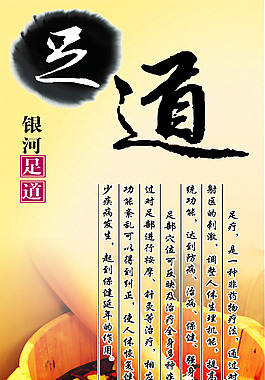 足
道
银河足道
足疗，是一种非药物疗法，通过对
射区的刺激，调整人体生理机能，提高
统功能，达到防病、治病、保健、强身
足部穴位可反映及治疗全身多种
过对足部进行按摩、针灸等治疗，相应
功能紊乱可以得到纠正，使人体恢复健
少疾病发生，起到保健延年的作用。